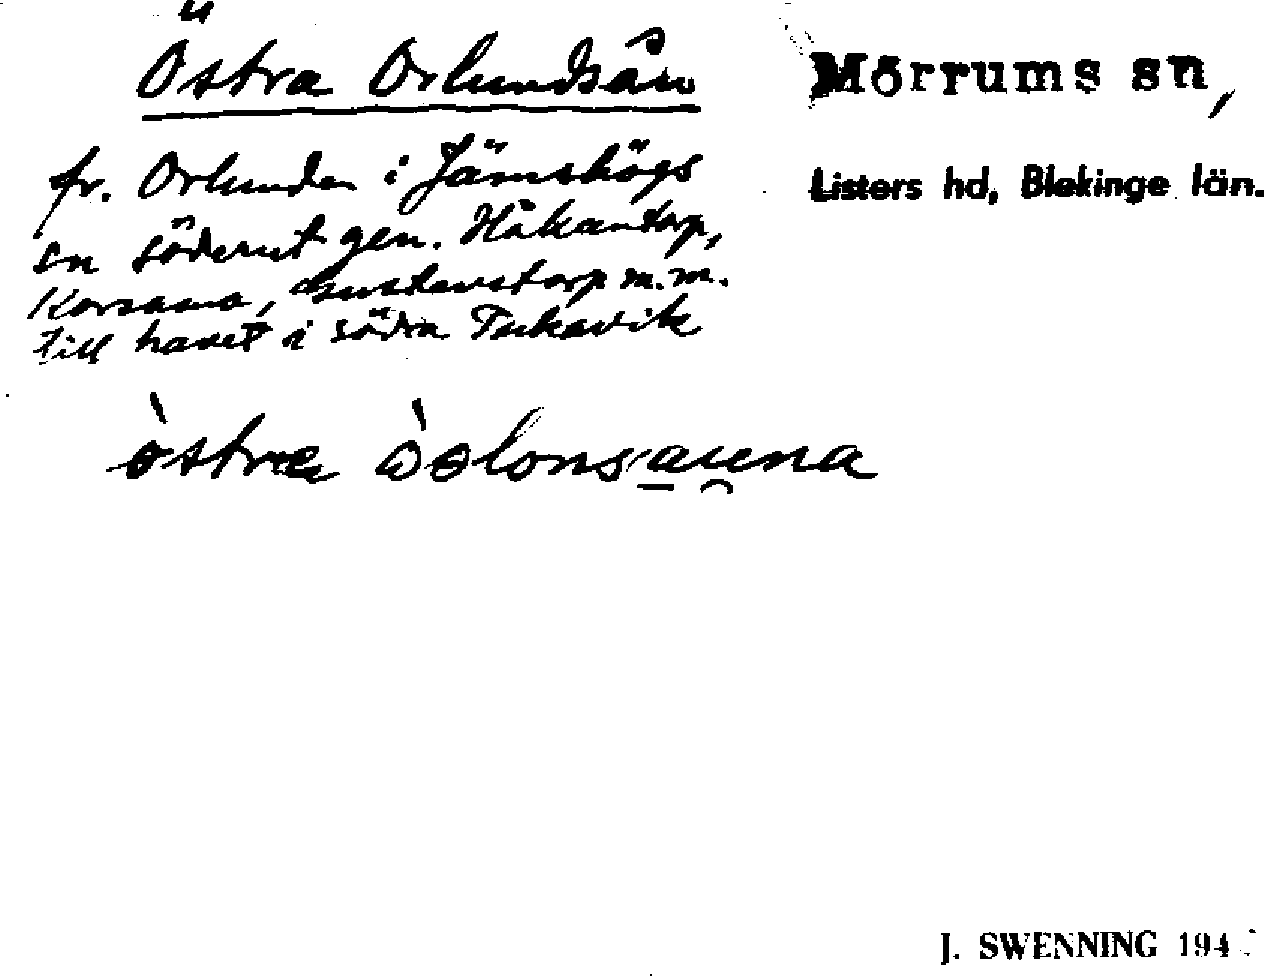 Östra Orlundsån
Mörrums sn,
Listers hd, Blekinge län.
fr. Orlunden i Jämshögs
sn söderut gen. Håkantorp,
Gustavstorp m.m.
till havet i södra
östra
J. SWENNING 194